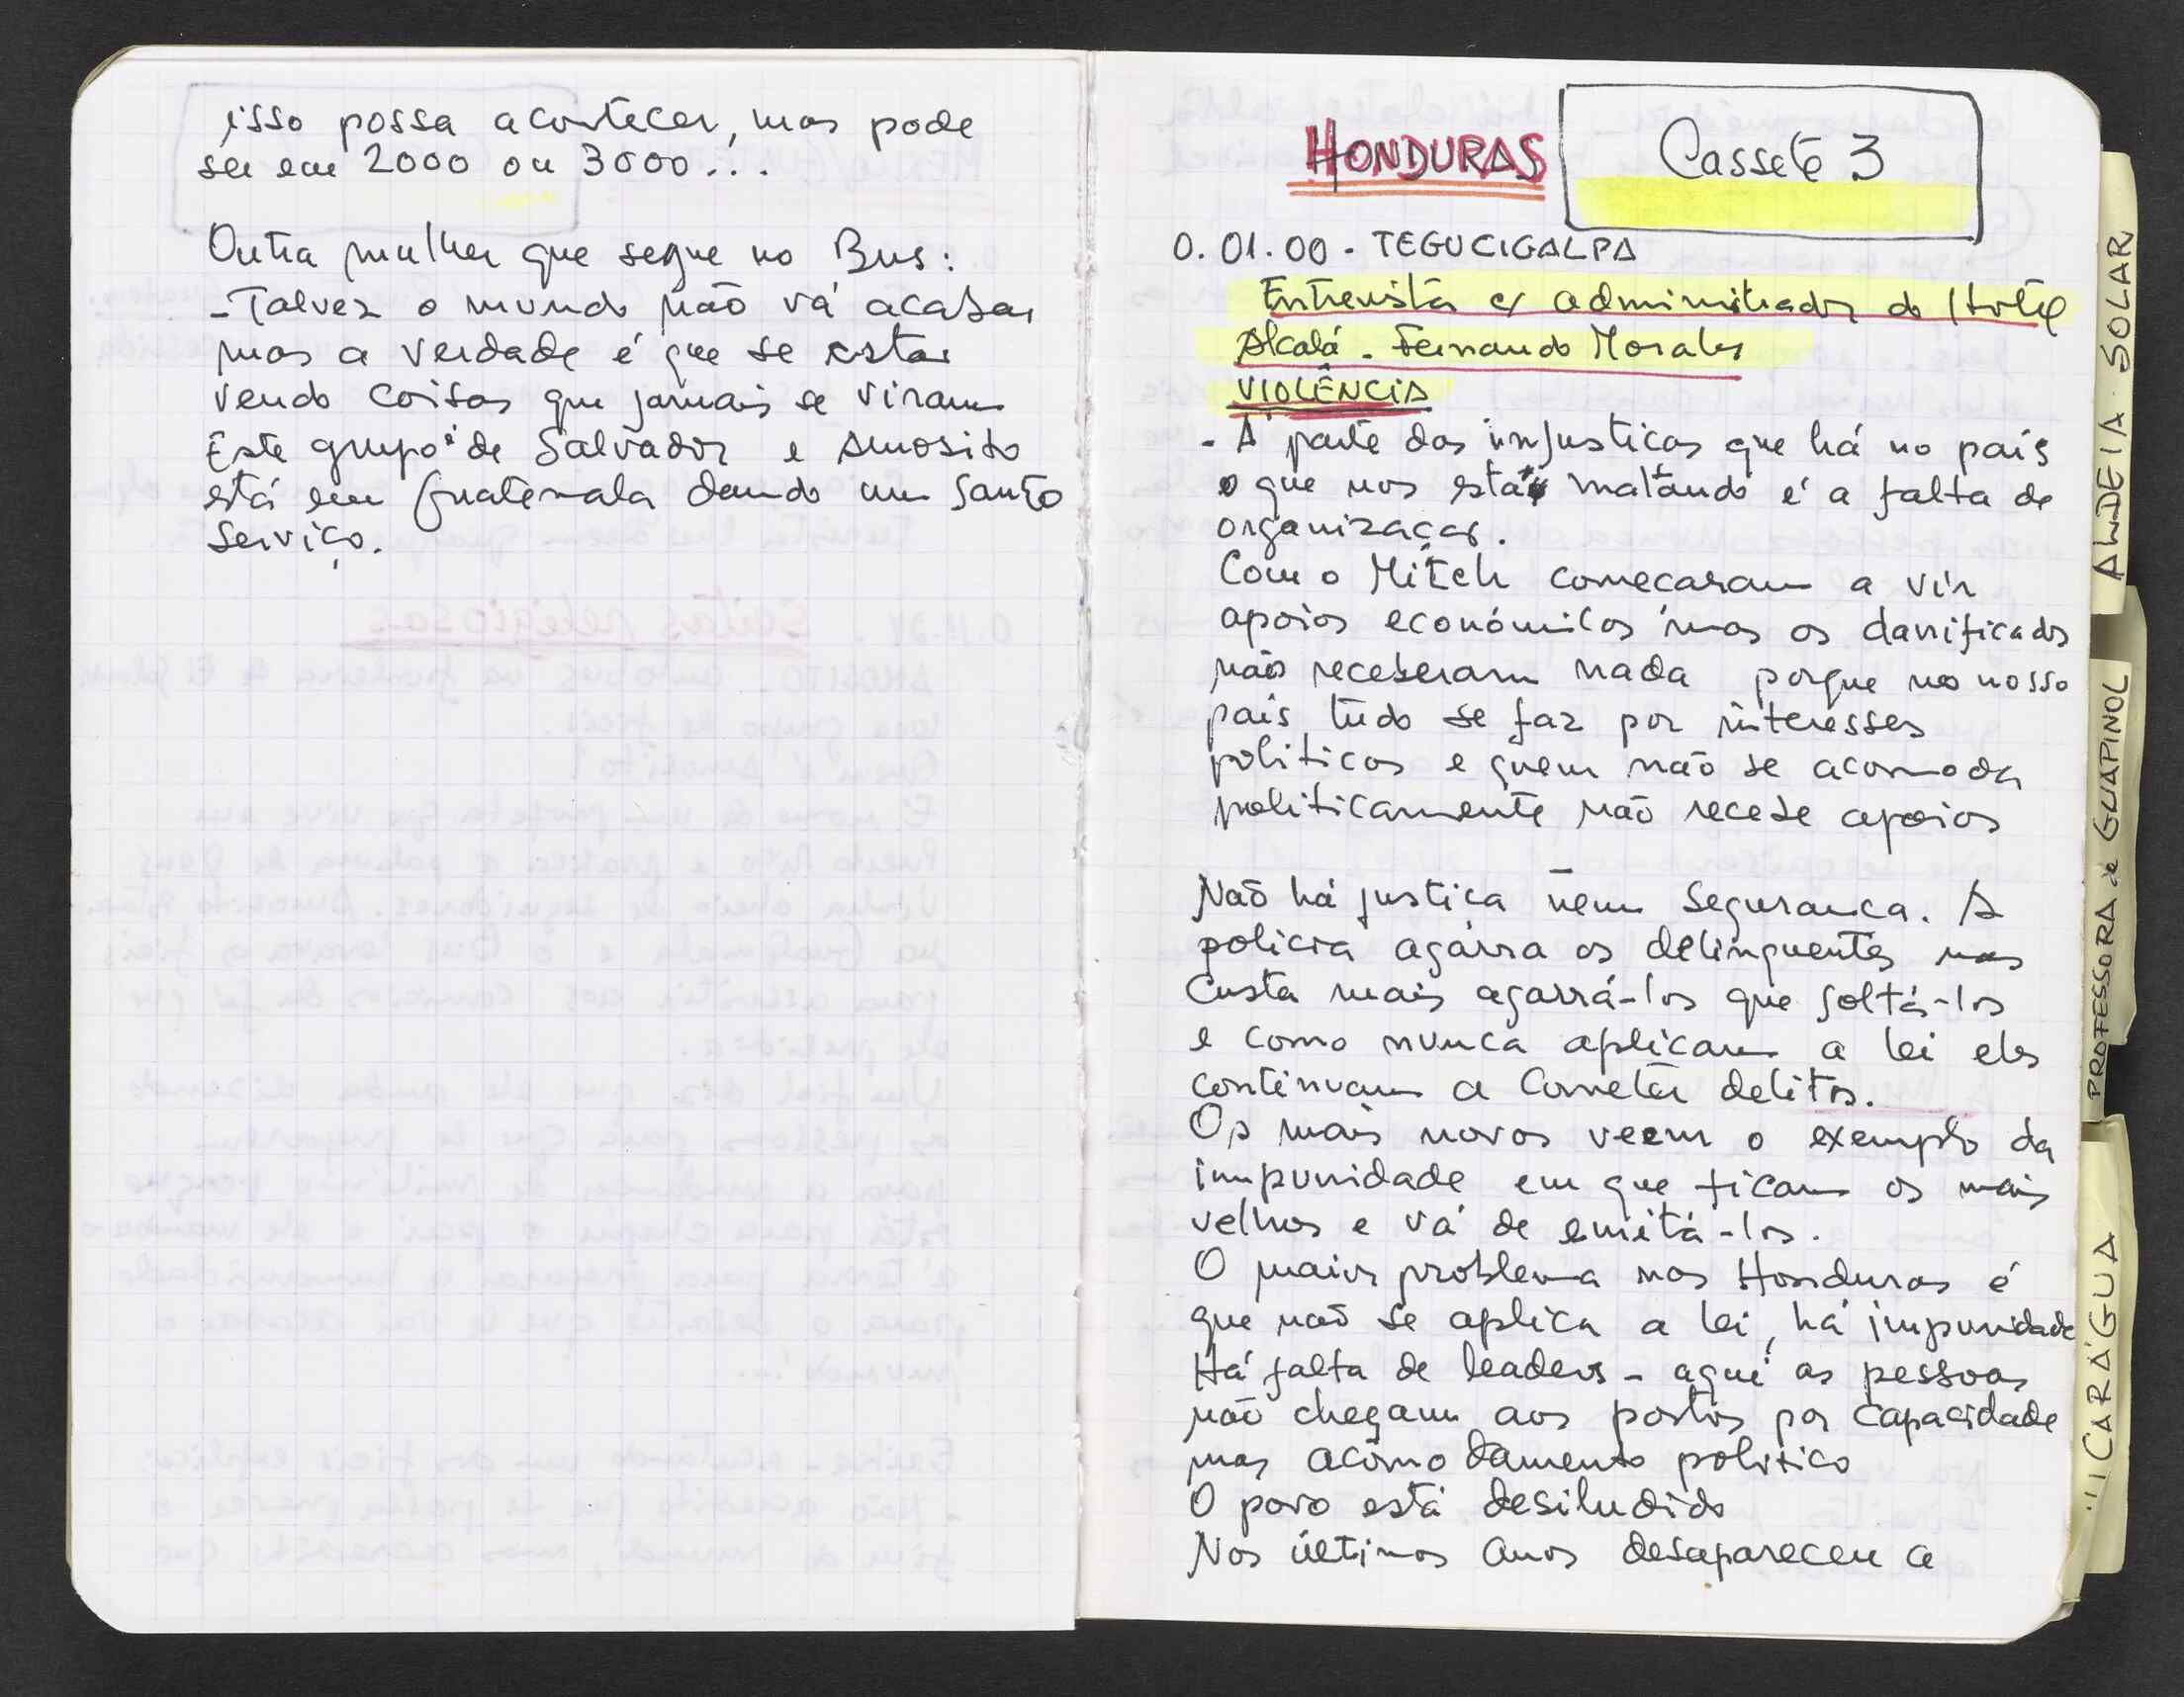 isso possa acontecer, mas pode
ser em 2000 ou 3000...
Outra mulher que segue no Bus:
- Talvez o mundo não vá acabar
mas a verdade é que se estar
vendo coisas que jamais se viram
Este grupo é de Salvador e Amosito
está em Guatemala dando um Santo
Serviço.
HONDURAS
Cassete 3
0.01.00 - TEGUCIGALPA
Entrevista c/ administrador do Hotel
Alcalá - Fernando Morales
VIOLÊNCIA
- À parte das injusticas que há no país
o que nos está matando é a falta de
organização.
Com o Mitch comecaram a vir
apoios económicos mas os danificados
não receberam nada porque no nosso
país tudo se faz por interesses
politicos e quem não se acomoda
politicamente não recebe apoios
Não há justiça nem Seguranca. A
policia agarra os delinquentes mas
Custa mais agarrá-los que soltá-los
e como nunca aplicam a lei eles
continuam a Cometer delitos.
Os mais novos veem o exemplo da
impunidade em que ficam os mais
velhos e vá de emitá-los.
O maior problema nas Honduras é
que não se aplica a lei, há impunidade
Há falta de leaders - aqui as pessoas
não chegam aos postos por Capacidade
mas acomodamento politico
O povo está desiludido
Nos últimos anos desapareceu a
ALDEIA SOLAR
PROFESSORA de GUAPINOL
ICARÁGUA